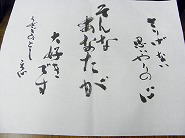 さりげない
思いやりの心
そんな
あなたが
大好きです